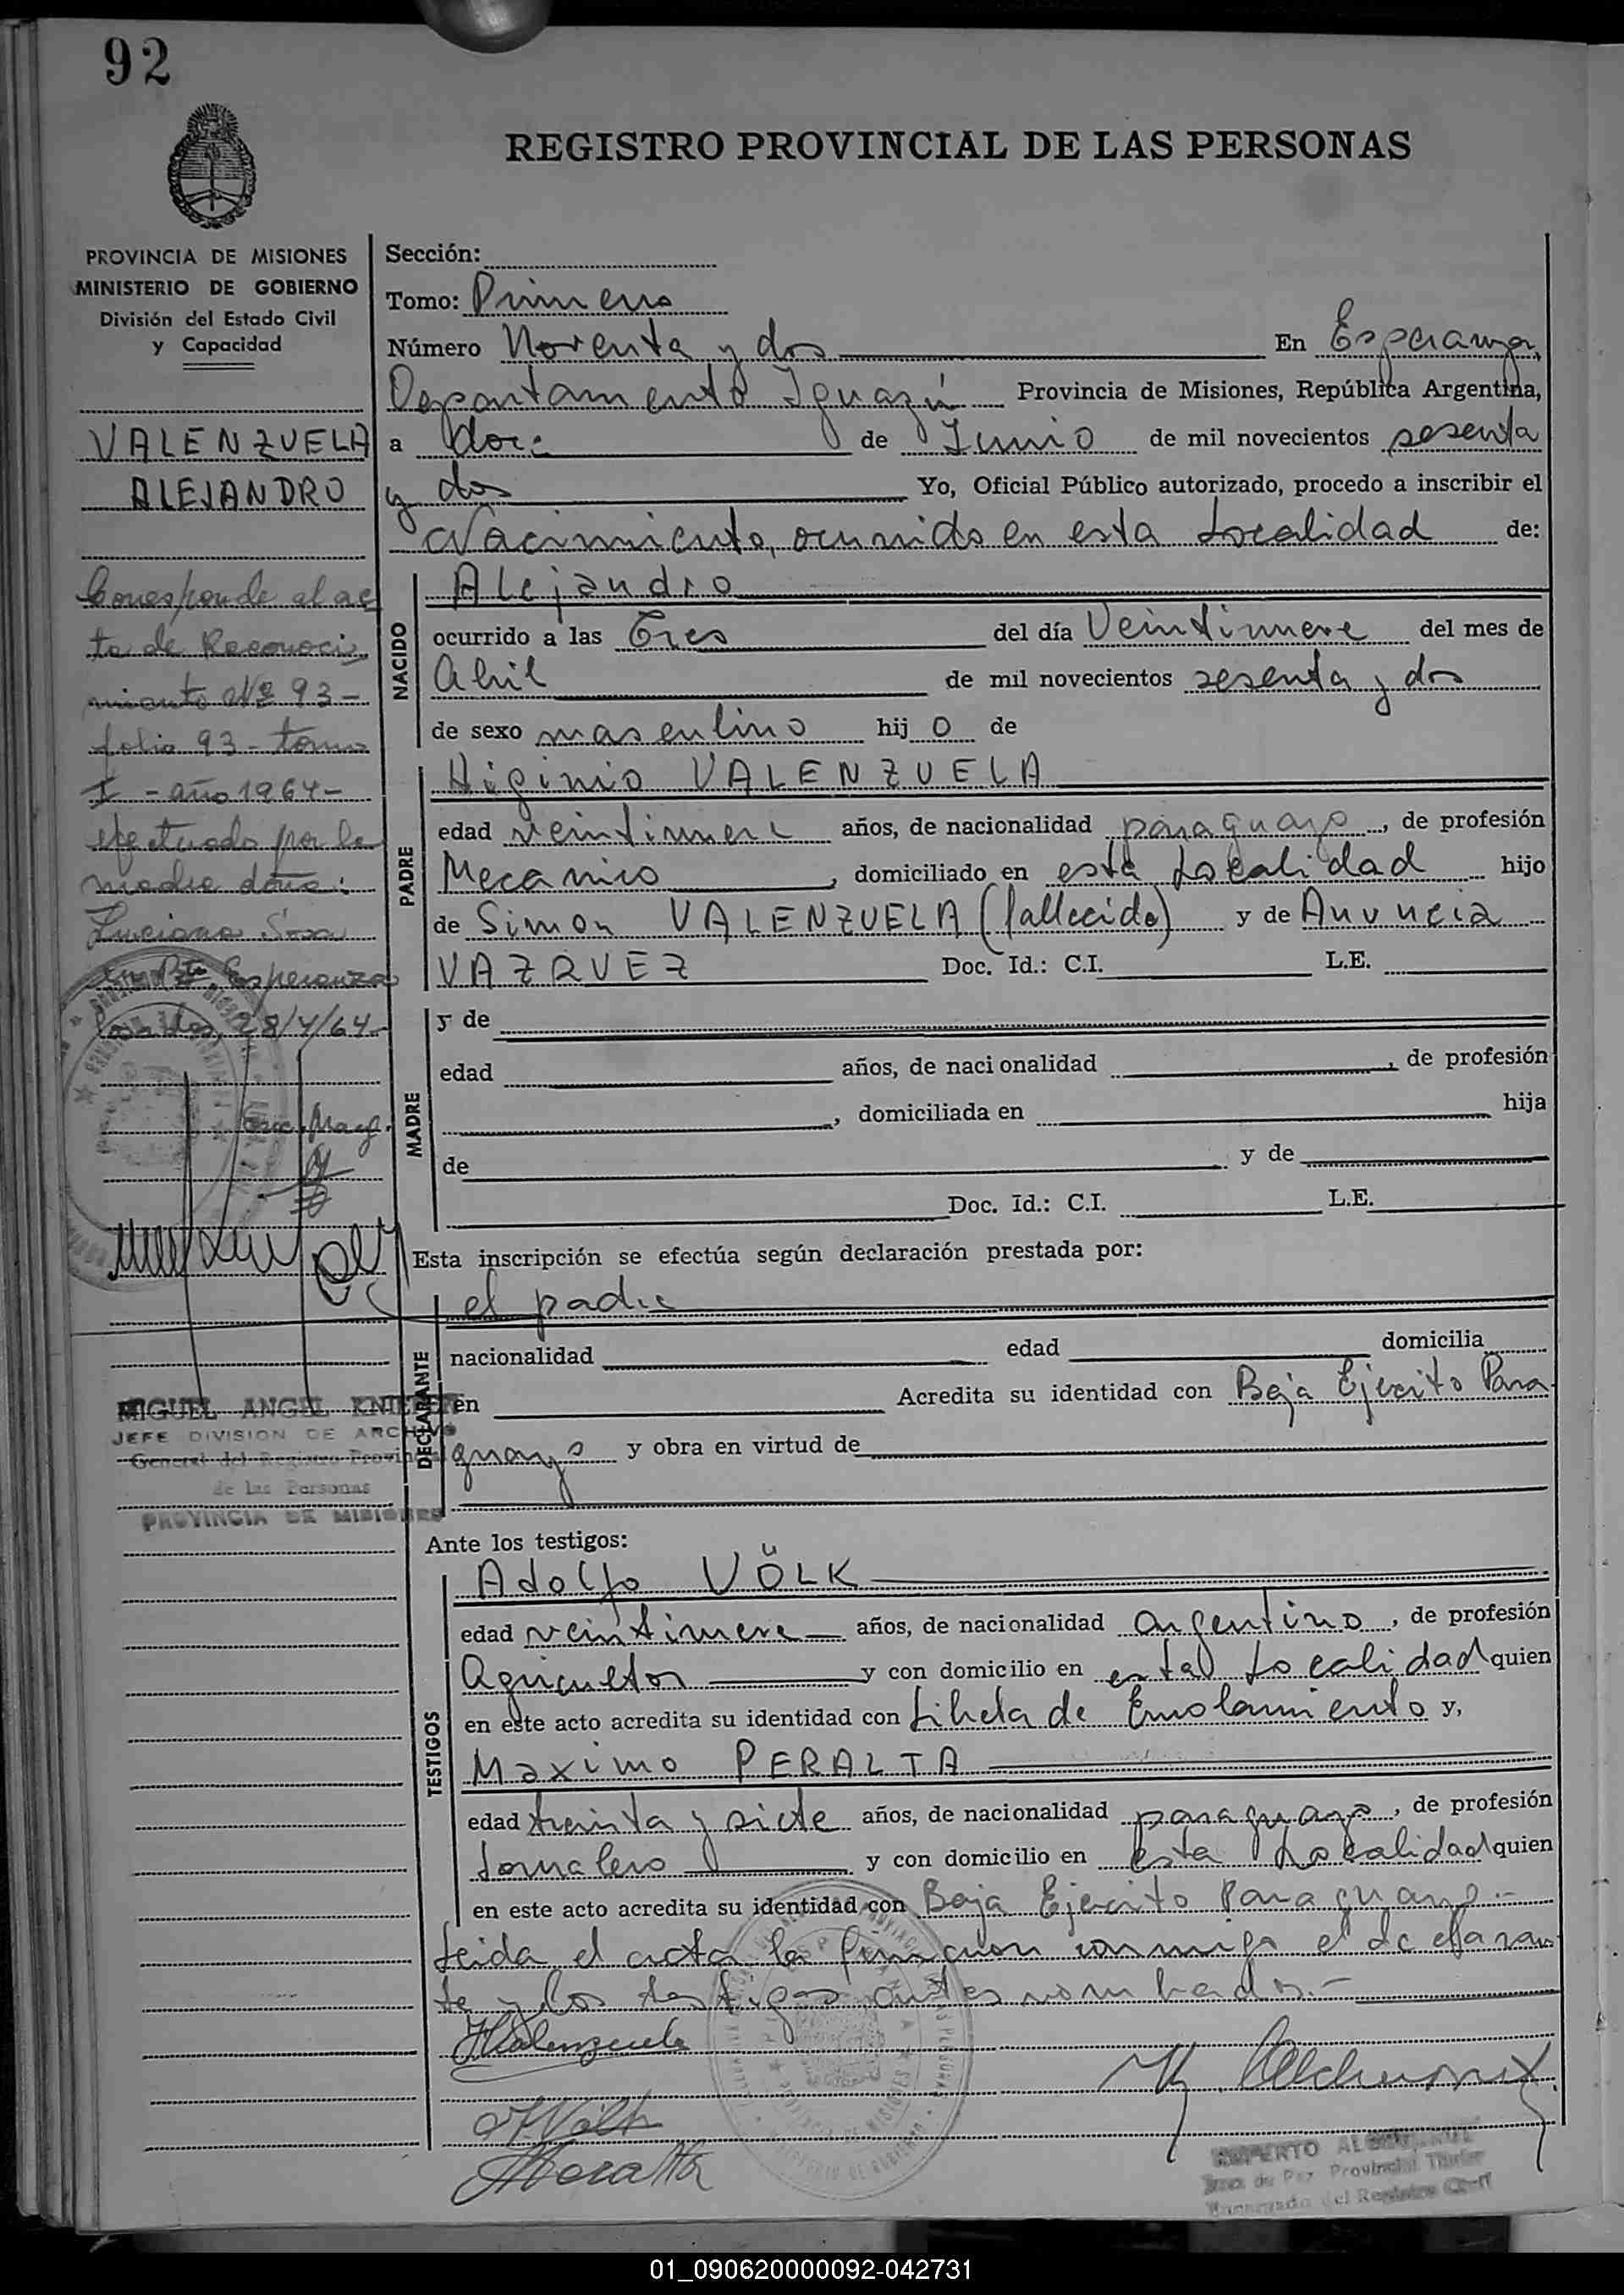 92
REGISTRO PROVINCIAL DE LAS PERSONAS
PROVINCIA DE MISIONES
MINISTERIO DE GOBIERNO
División del Estado Civil
y Capacidad
VALENZUELA
ALEJANDRO
Corresponde al ac
ta de Reconoci
miento Nº 93-
folio 93 - tomo
I - año 1964-
efectuado por la
madre doña:
Luciana Sosa
en Pto Esperanza
28/4/64-
MIGUEL ANGEL
JEFE DIVISION DE ARCHIVO
General del Registro Provincial
de las Personas
PROVINCIA DE MISIONES
Sección:
Tomo: Primero
Número Noventa y dos En Esperanza,
Departamento Iguazú Provincia de Misiones, República Argentina,
a doce de Junio de mil novecientos sesenta
y dos Yo, Oficial Público autorizado, procedo a inscribir el
Nacimiento, ocurrido en esta Localidad de:
NACIDO
Alejandro
ocurrido a las Tres del día Veintinueve del mes de
Abril de mil novecientos sesenta y dos
de sexo masculino hij o de
PADRE
Higinio VALENZUELA
edad veintinueve años, de nacionalidad paraguayo, de profesión
Mecanico, domiciliado en esta Localidad hijo
de Simon VALENZUELA (fallecido) y de Anuncia
VAZQUEZ Doc. Id.: C.I. L.E.
MADRE
y de
edad años, de nacionalidad , de profesión
, domiciliada en hija
de y de
Doc. Id.: C.I. L.E.
Esta inscripción se efectúa según declaración prestada por:
DECLARANTE
el padre
nacionalidad edad domicilia
en Acredita su identidad con Baja Ejercito Para
guayo y obra en virtud de
Ante los testigos:
TESTIGOS
Adolfo VÖLK
edad veintinueve años, de nacionalidad argentino, de profesión
Agricultor y con domicilio en esta Localidad quien
en este acto acredita su identidad con Libreta de Enrolamiento y,
Maximo PERALTA
edad treinta y siete años, de nacionalidad paraguayo, de profesión
Jornalero y con domicilio en esta Localidad quien
en este acto acredita su identidad con Baja Ejercito Paraguayo.-
Leida el acta la firmaron conmigo el declaran
te y los testigos antes nombrados.-
HValenzuela
AVölk
MPeralta
RUPERTO
Juez de Paz Provincial Titular
Encargado del Registro Civil
01_090620000092-042731